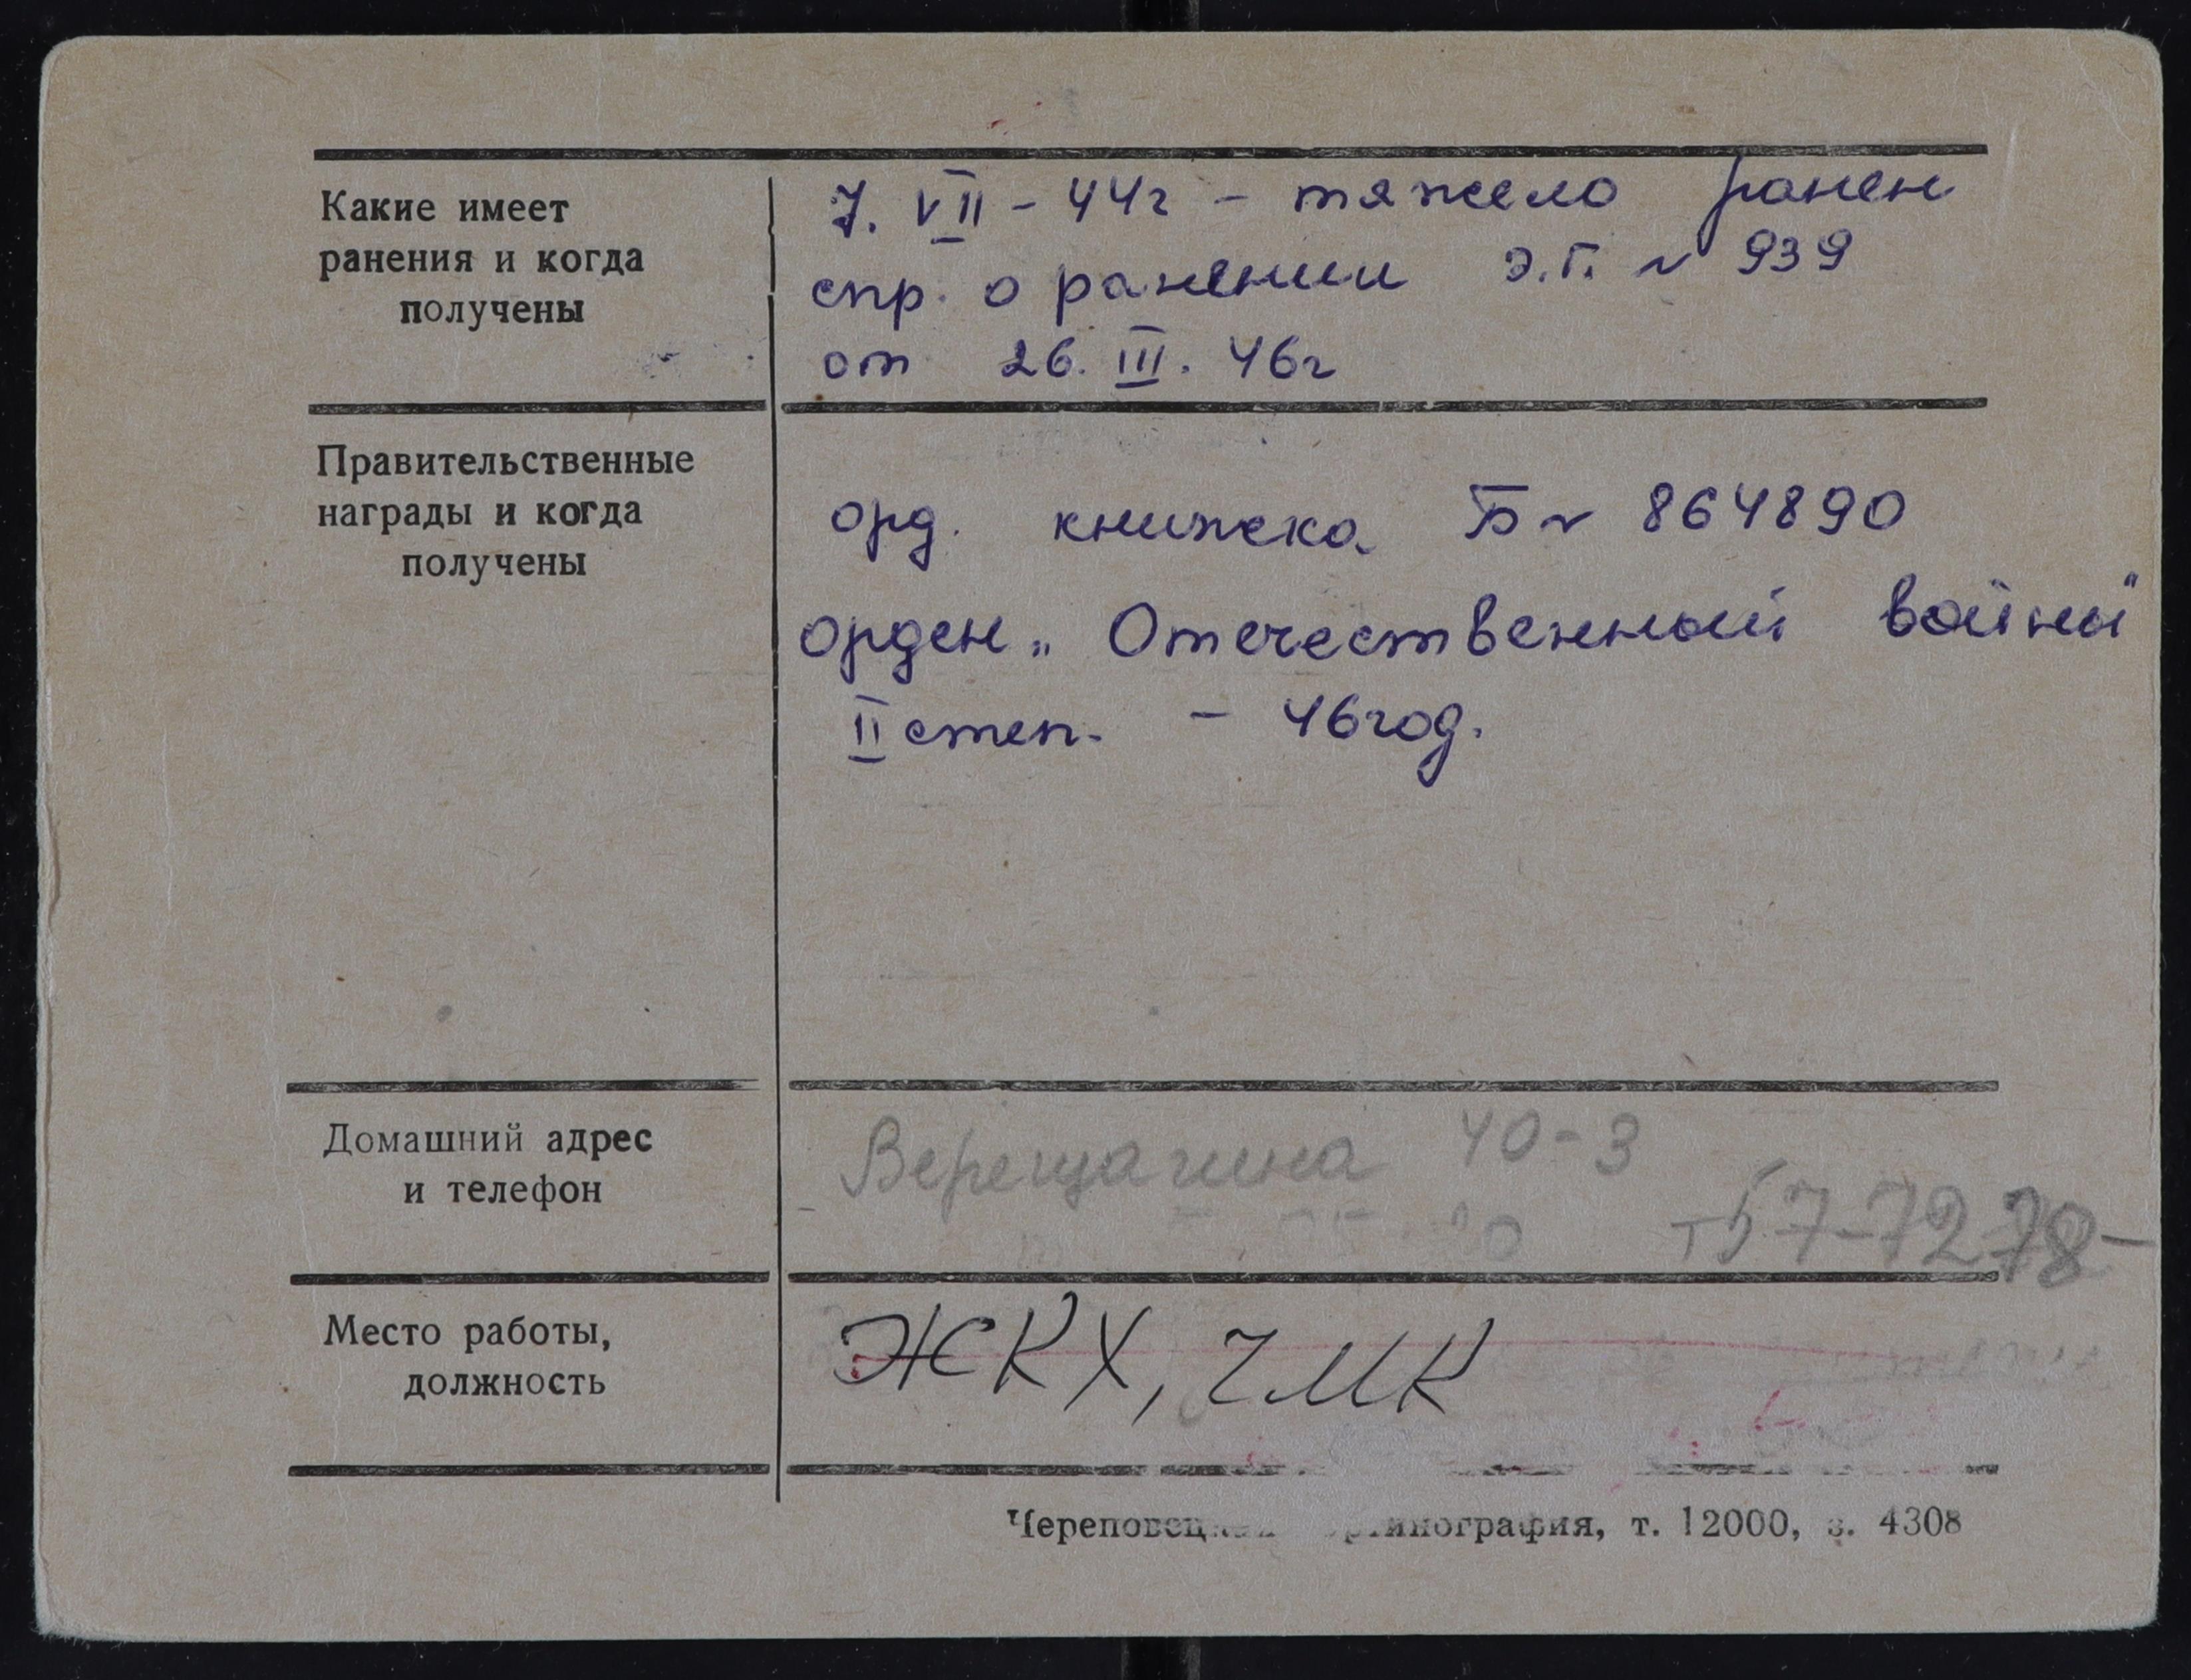 Какие имеет
ранения и когда
получены
7. VII - 44г - тяжело ранен
спр. о ранении Э.Г. № 939
от 26. III. 46г
Правительственные
награды и когда
получены
орд. книжка Б№ 864890
орден „Отечественный войны"
II степ. - 46год.
Домашний адрес
и телефон
Верещагина 40-3
т 57-72-78-
Место работы,
должность
ЖКХ, ЧМК
т. 12000, з. 4308